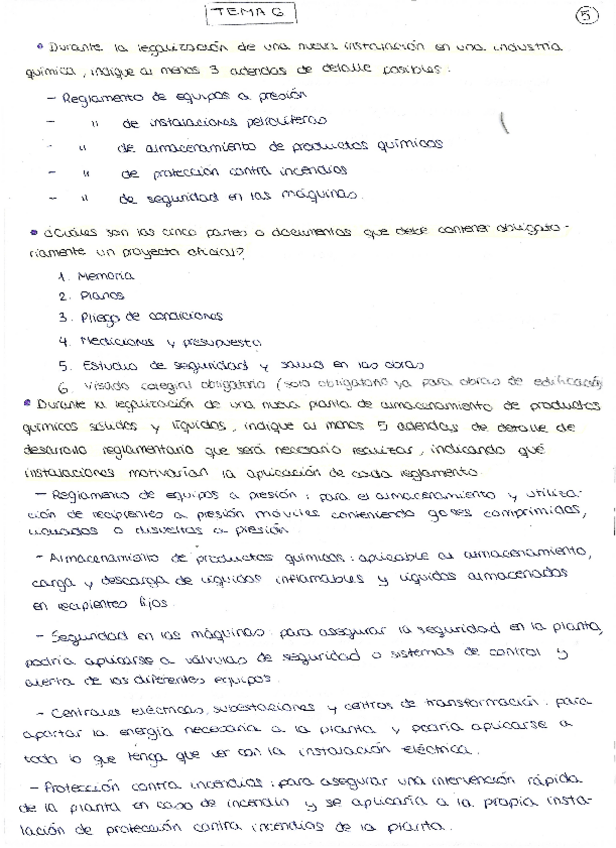 TEMA 6
5
• Durante la legalización de una nueva instalación en una industria
química, indique al menos 3 adendas de detalle posibles.
- Reglamento de equipos a presión
- " de instalaciones petrolíferas
- " de almacenamiento de productos químicos
- " de protección contra incendios
- " de seguridad en las máquinas.
• ¿Cuáles son las cinco partes o documentos que debe contener obligato-
riamente un proyecto oficial?
1. Memoria
2. Planos
3. Pliego de condiciones
4. Mediciones y presupuesto
5. Estudio de seguridad y salud en las obras
6. Visado colegial obligatorio (solo obligatorio ya para obras de edificación)
• Durante la legalización de una nueva planta de almacenamiento de productos
químicos sólidos y líquidos, indique al menos 5 adendas de detalle de
desarrollo reglamentario que será necesario realizar, indicando qué
instalaciones motivarían la aplicación de cada reglamento.
- Reglamento de equipos a presión: para el almacenamiento y utiliza-
ción de recipientes a presión móviles conteniendo gases comprimidos,
licuados o disueltos a presión.
- Almacenamiento de productos químicos: aplicable al almacenamiento,
carga y descarga de líquidos inflamables y líquidos almacenados
en recipientes fijos.
- Seguridad en las máquinas: para asegurar la seguridad en la planta,
podría aplicarse a válvulas de seguridad o sistemas de control y
alerta de los diferentes equipos.
- Centrales eléctricas, subestaciones y centros de transformación: para
aportar la energía necesaria a la planta y podría aplicarse a
todo lo que tenga que ver con la instalación eléctrica.
- Protección contra incendios: para asegurar una intervención rápida
de la planta en caso de incendio y se aplicaría a la propia insta-
lación de protección contra incendios de la planta.